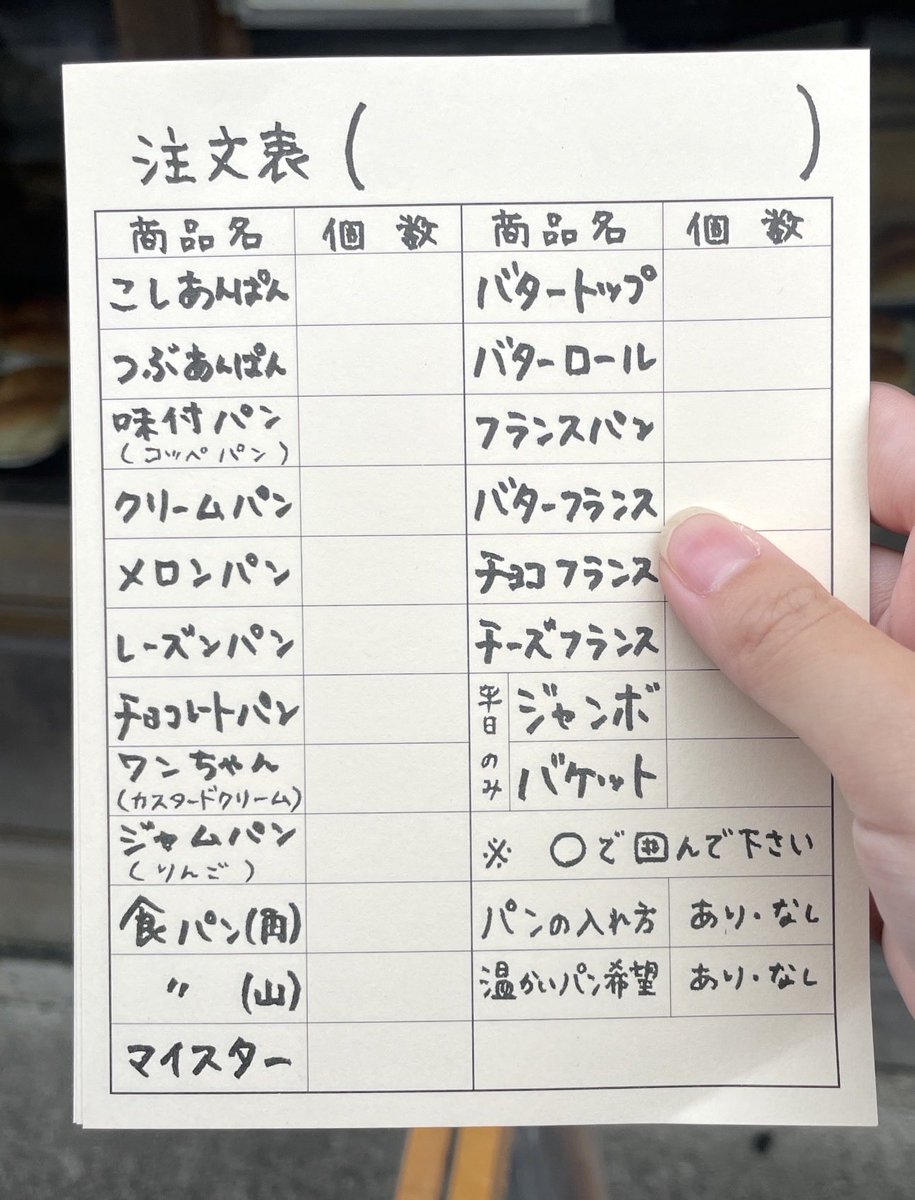 注文表（　　　　　）
商品名　個数　商品名　個数
こしあんぱん　バタートップ
つぶあんぱん　バターロール
味付パン　フランスパン
（コッペパン）
クリームパン　バターフランス
メロンパン　チョコフランス
レーズンパン　チーズフランス
チョコレートパン　平日のみ　ジャンボ
ワンちゃん　バケット
（カスタードクリーム）
ジャムパン　※　〇で囲んで下さい
（りんご）
食パン（角）　パンの入れ方　あり・なし
〃（山）　温かいパン希望　あり・なし
マイスター